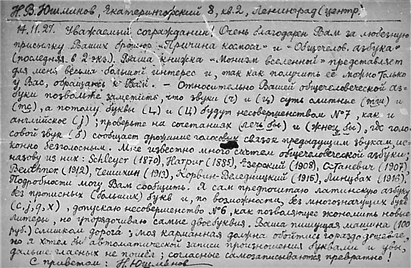 Н.В.Юшманов, Екатерингофский 8, кв.2, Ленинград (центр)
14.11.27. Уважаемый согражданин! Очень благодарен Вам за любезную
присылку Ваших брошюр «Причина космоса» и «Общечелов. азбука»
(последняя в 2 экз.). Ваша книжка «Монизм вселенной» представляет
для меня весьма большой интерес и, так как получить её можно только
у Вас, обращаюсь к Вам. — Относительно Вашей общечеловеческой аз-
буки позвольте заметить, что звуки (ч) и (ц) суть слитные (тш) и
(тс), а потому буквы (ч) и (ц) будут несовершенством №7, как и
английское (j); проверьте на сочетаниях (лечь бы) и (жнец бы), где голо-
совой звук (б) сообщает дрожание голосовых связок предидущим звукам, ис-
конно безголосным. Мне известно много систем общечеловеческой азбуки;
назову из них: Schleyer (1870), (1885), (1908), (1907)
(1912), Чешихин (1913), Корвин-Величицкий (1915), Линцбах (1916).
Подробности могу Вам сообщить. Я сам предпочитаю латинскую азбуку
без прописных (больших) букв и, по возможности, без многозначных букв
(c, j, q, x), допускаю несовершенство №6, как позволяющее экономить новые
литеры, но упорядочиваю сильно двоебуквия. Ваша пишущая машина (100
руб.) слишком дорога; моя карманная должна обойтись гораздо дешевле,
но я хотел бы автоматической записи произношения буквами и, увы,
дальше гласных не пошёл; согласные самозаписываются превратно!
С приветом: Н.Юшманов